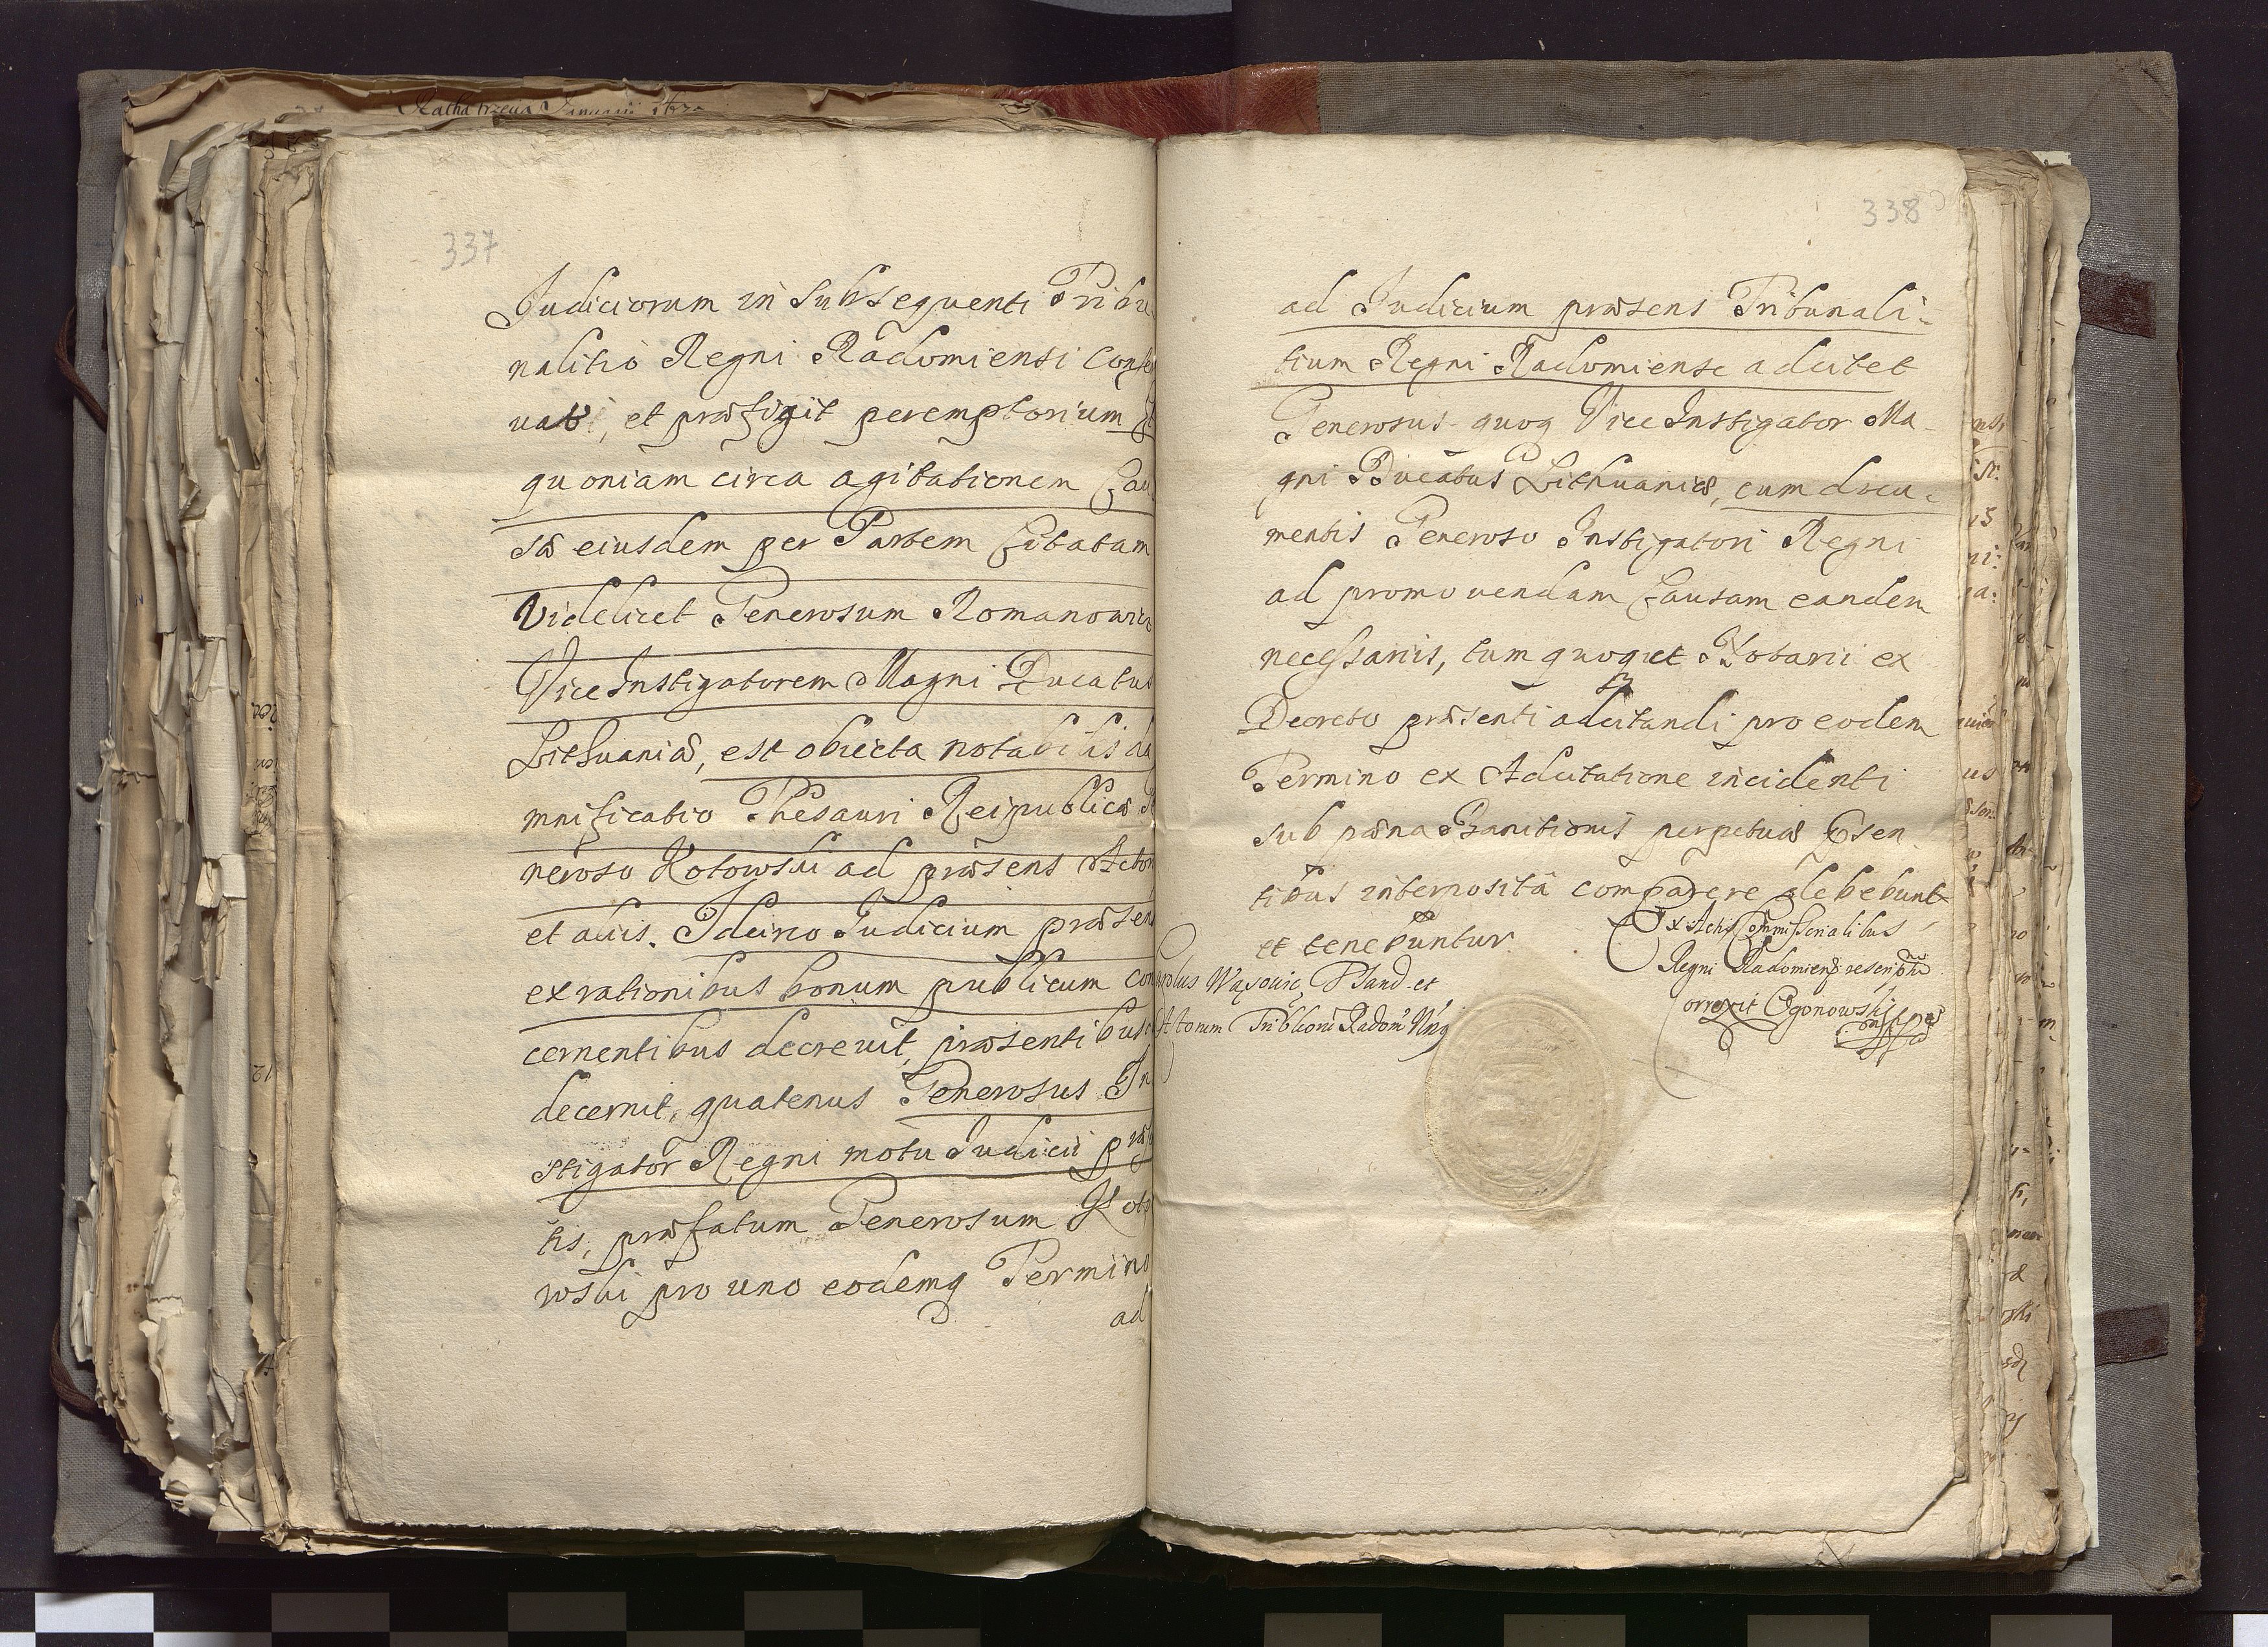 337
Judiciorum in Subsequenti Tribu
nalitio Regni Radomiensi Conser
uari, et præfigit peremptorium Et
quoniam circa agitationem Cau
sæ eiusdem per Partem Citatam
Videlicet Generosum Romanowic
Vice Instigatorem Magni Ducatus
Lithuaniæ, est obiecta notabilis da
mnificatio Thesauri Reipublicæ
neroso Kotowski ad præsens Actor
et aliis. Idcirco Judicium præsen
ex rationibus bonum publicum con
cernentibus decreuit, præsentibus
decernit, quatenus Generosus In
stigator Regni motu Judicii præ
tis, præfatum Generosum Koto
wski pro uno eodemq Termino
ad
338
ad Judicium præsens Tribunali-
tium Regni Radomiense adcitet
Generosus quoq Vice Instigator Ma-
gni Ducatus Lithuaniæ, cum docu-
mentis Generoso Instigatori Regni
ad promouendam Causam eandem
necessariis, tum quoque et Notarii ex
Decreto præsenti adcitandi pro eodem
Termino ex Adcitatione incidenti
sub pæna Banitionis perpetuæ Absen
tibus internosita comparere debebunt
et tenebuntur
Ex Actis Commissorialibus
Regni Radomiens rescriptu
Correxit Ogonowski